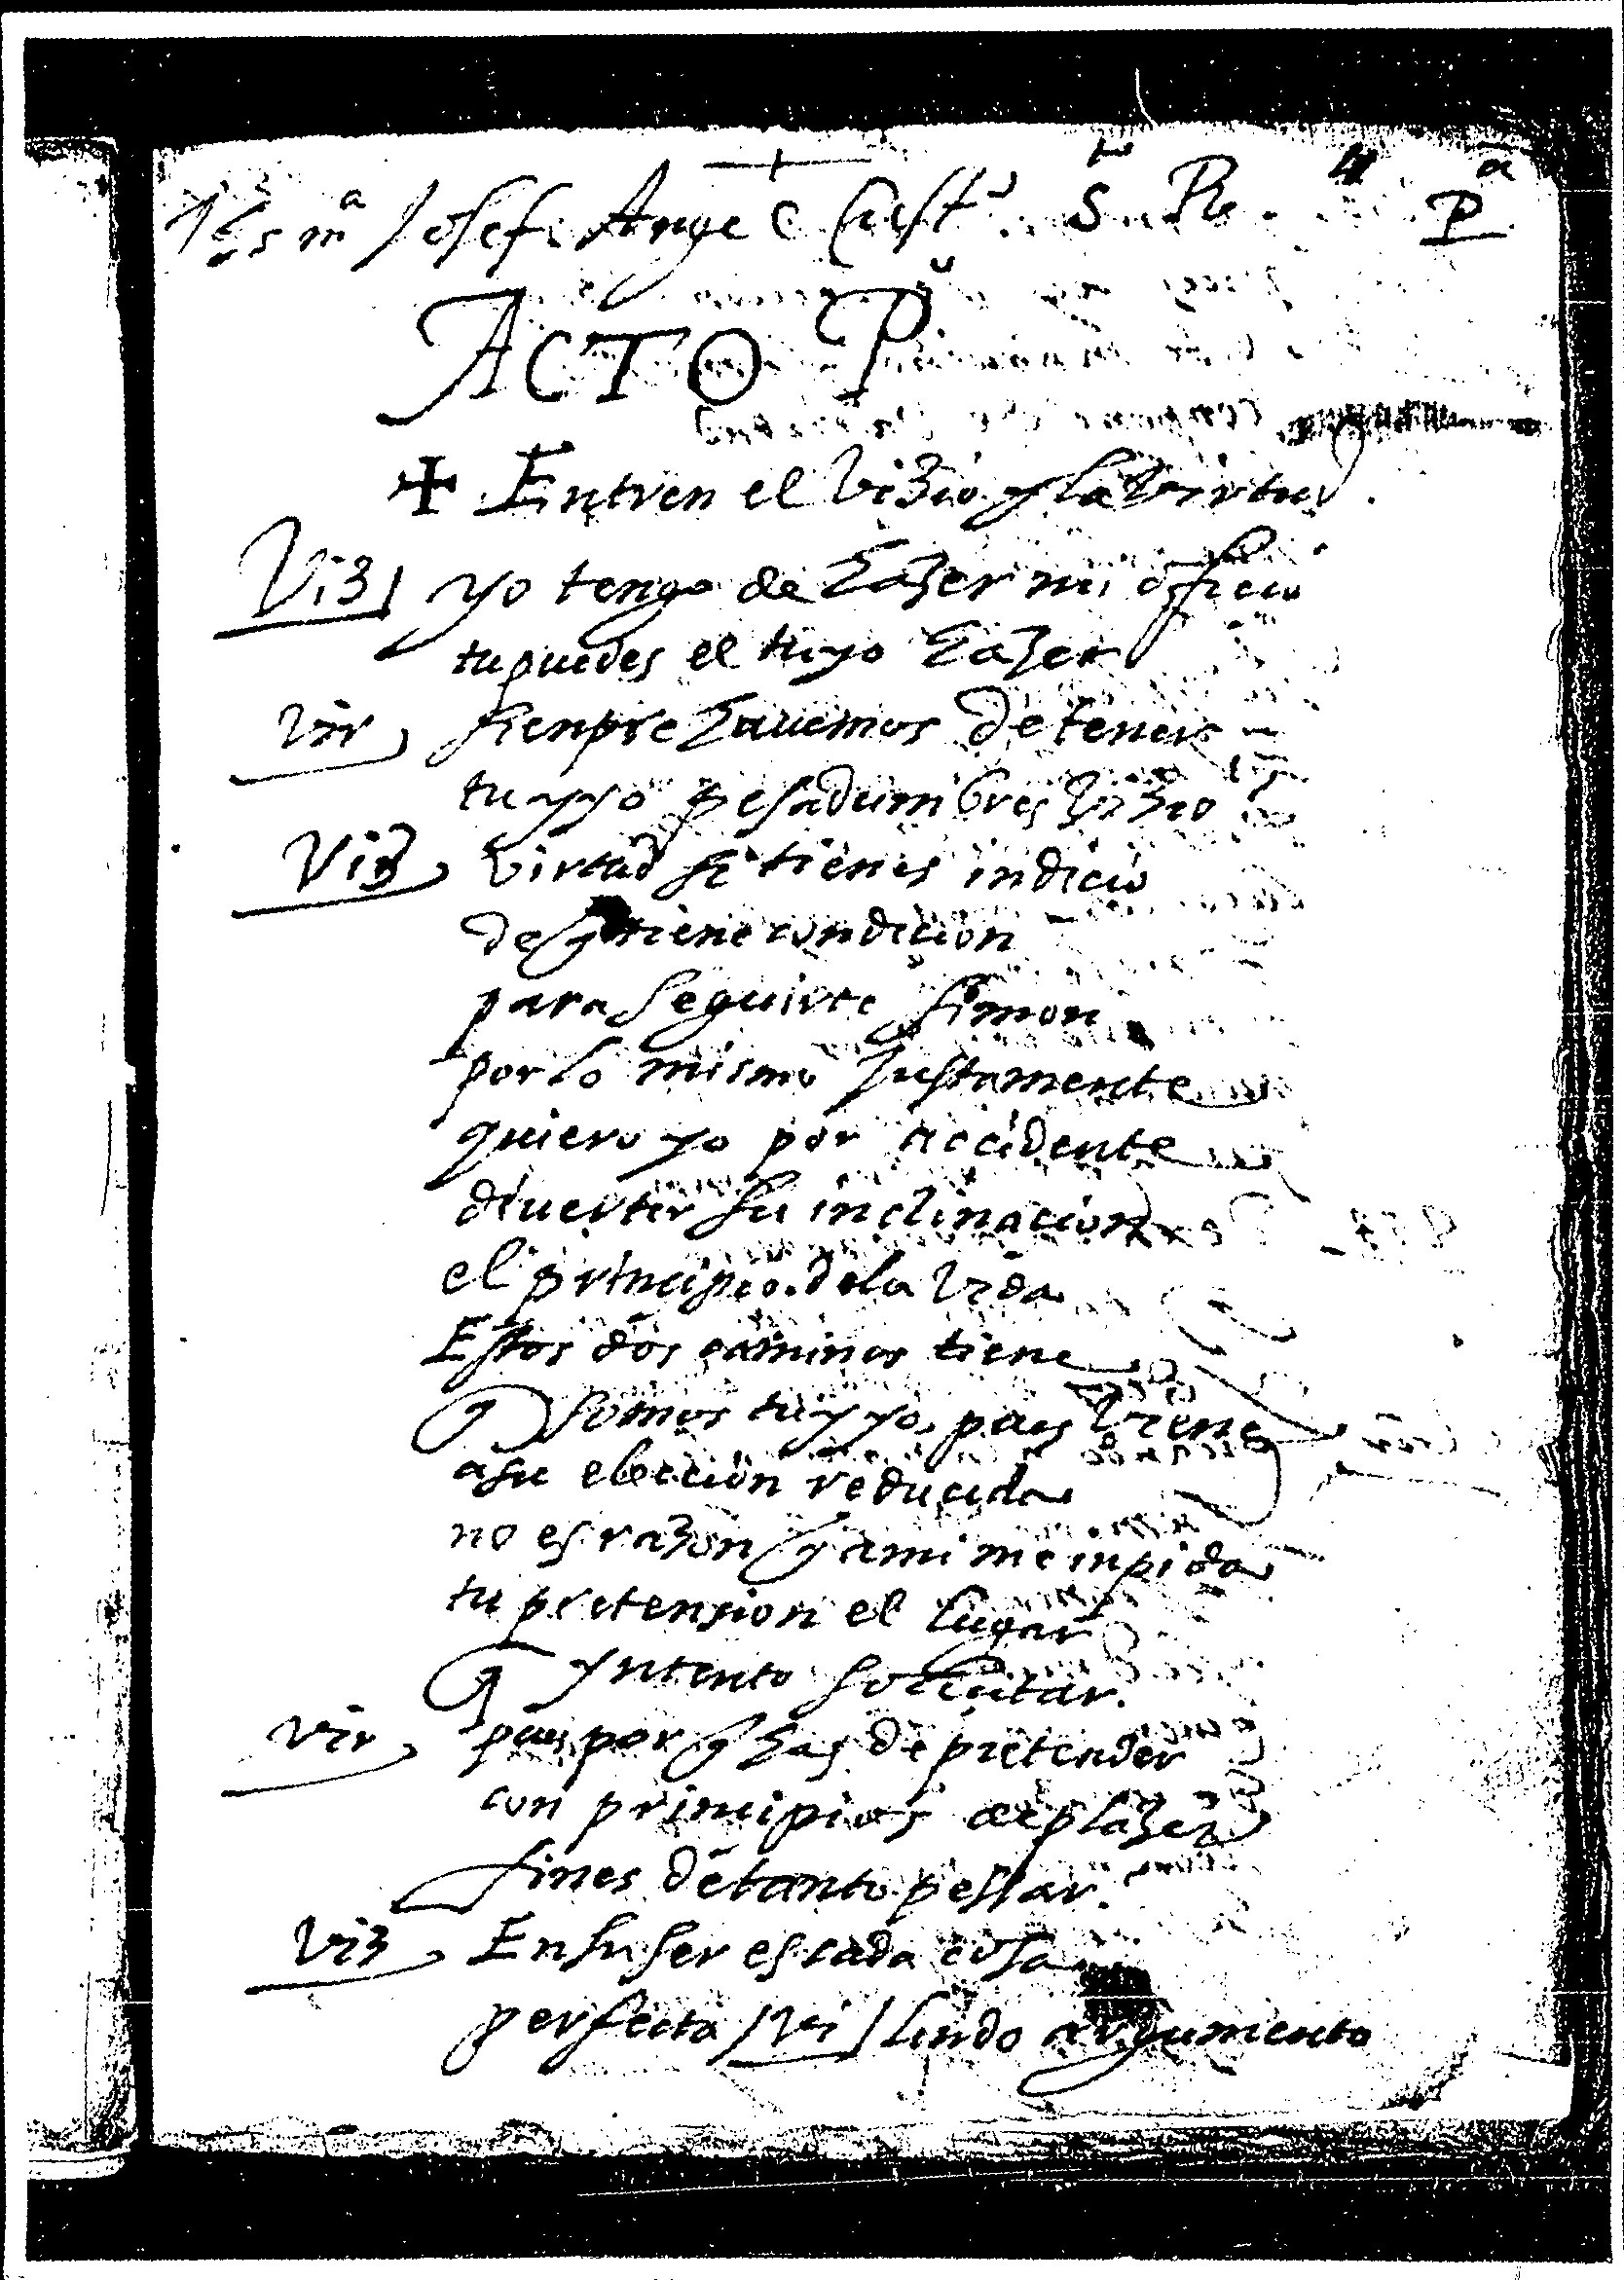 Jhs mª Josef. Ange C Cust.º S. R. Pª
ACTO Pº
✠ Entren el Vizio y la Virtud.
Viz yo tengo de hazer mi officio
tu puedes el tuyo hazer
Vir sienpre hauemos de tener
tu y yo pesadumbres vizio
Viz virtud si tienes indicio
de q tiene condicion
para seguirte simon
por lo mismo justamente
quiero yo por accidente
diuertir su inclinacion
el principio de la vida
Estos dos caminos tiene
q somos tu y yo, pues viene
a su eleccion reducida
no es razon q a mi me inpida
tu pretension el lugar
q yntento solicitar.
Vir pues por q has de pretender
con principios de plazer
fines de tanto pessar.
Viz En su ser es cada cosa
perfecta / Vi / lindo argumento